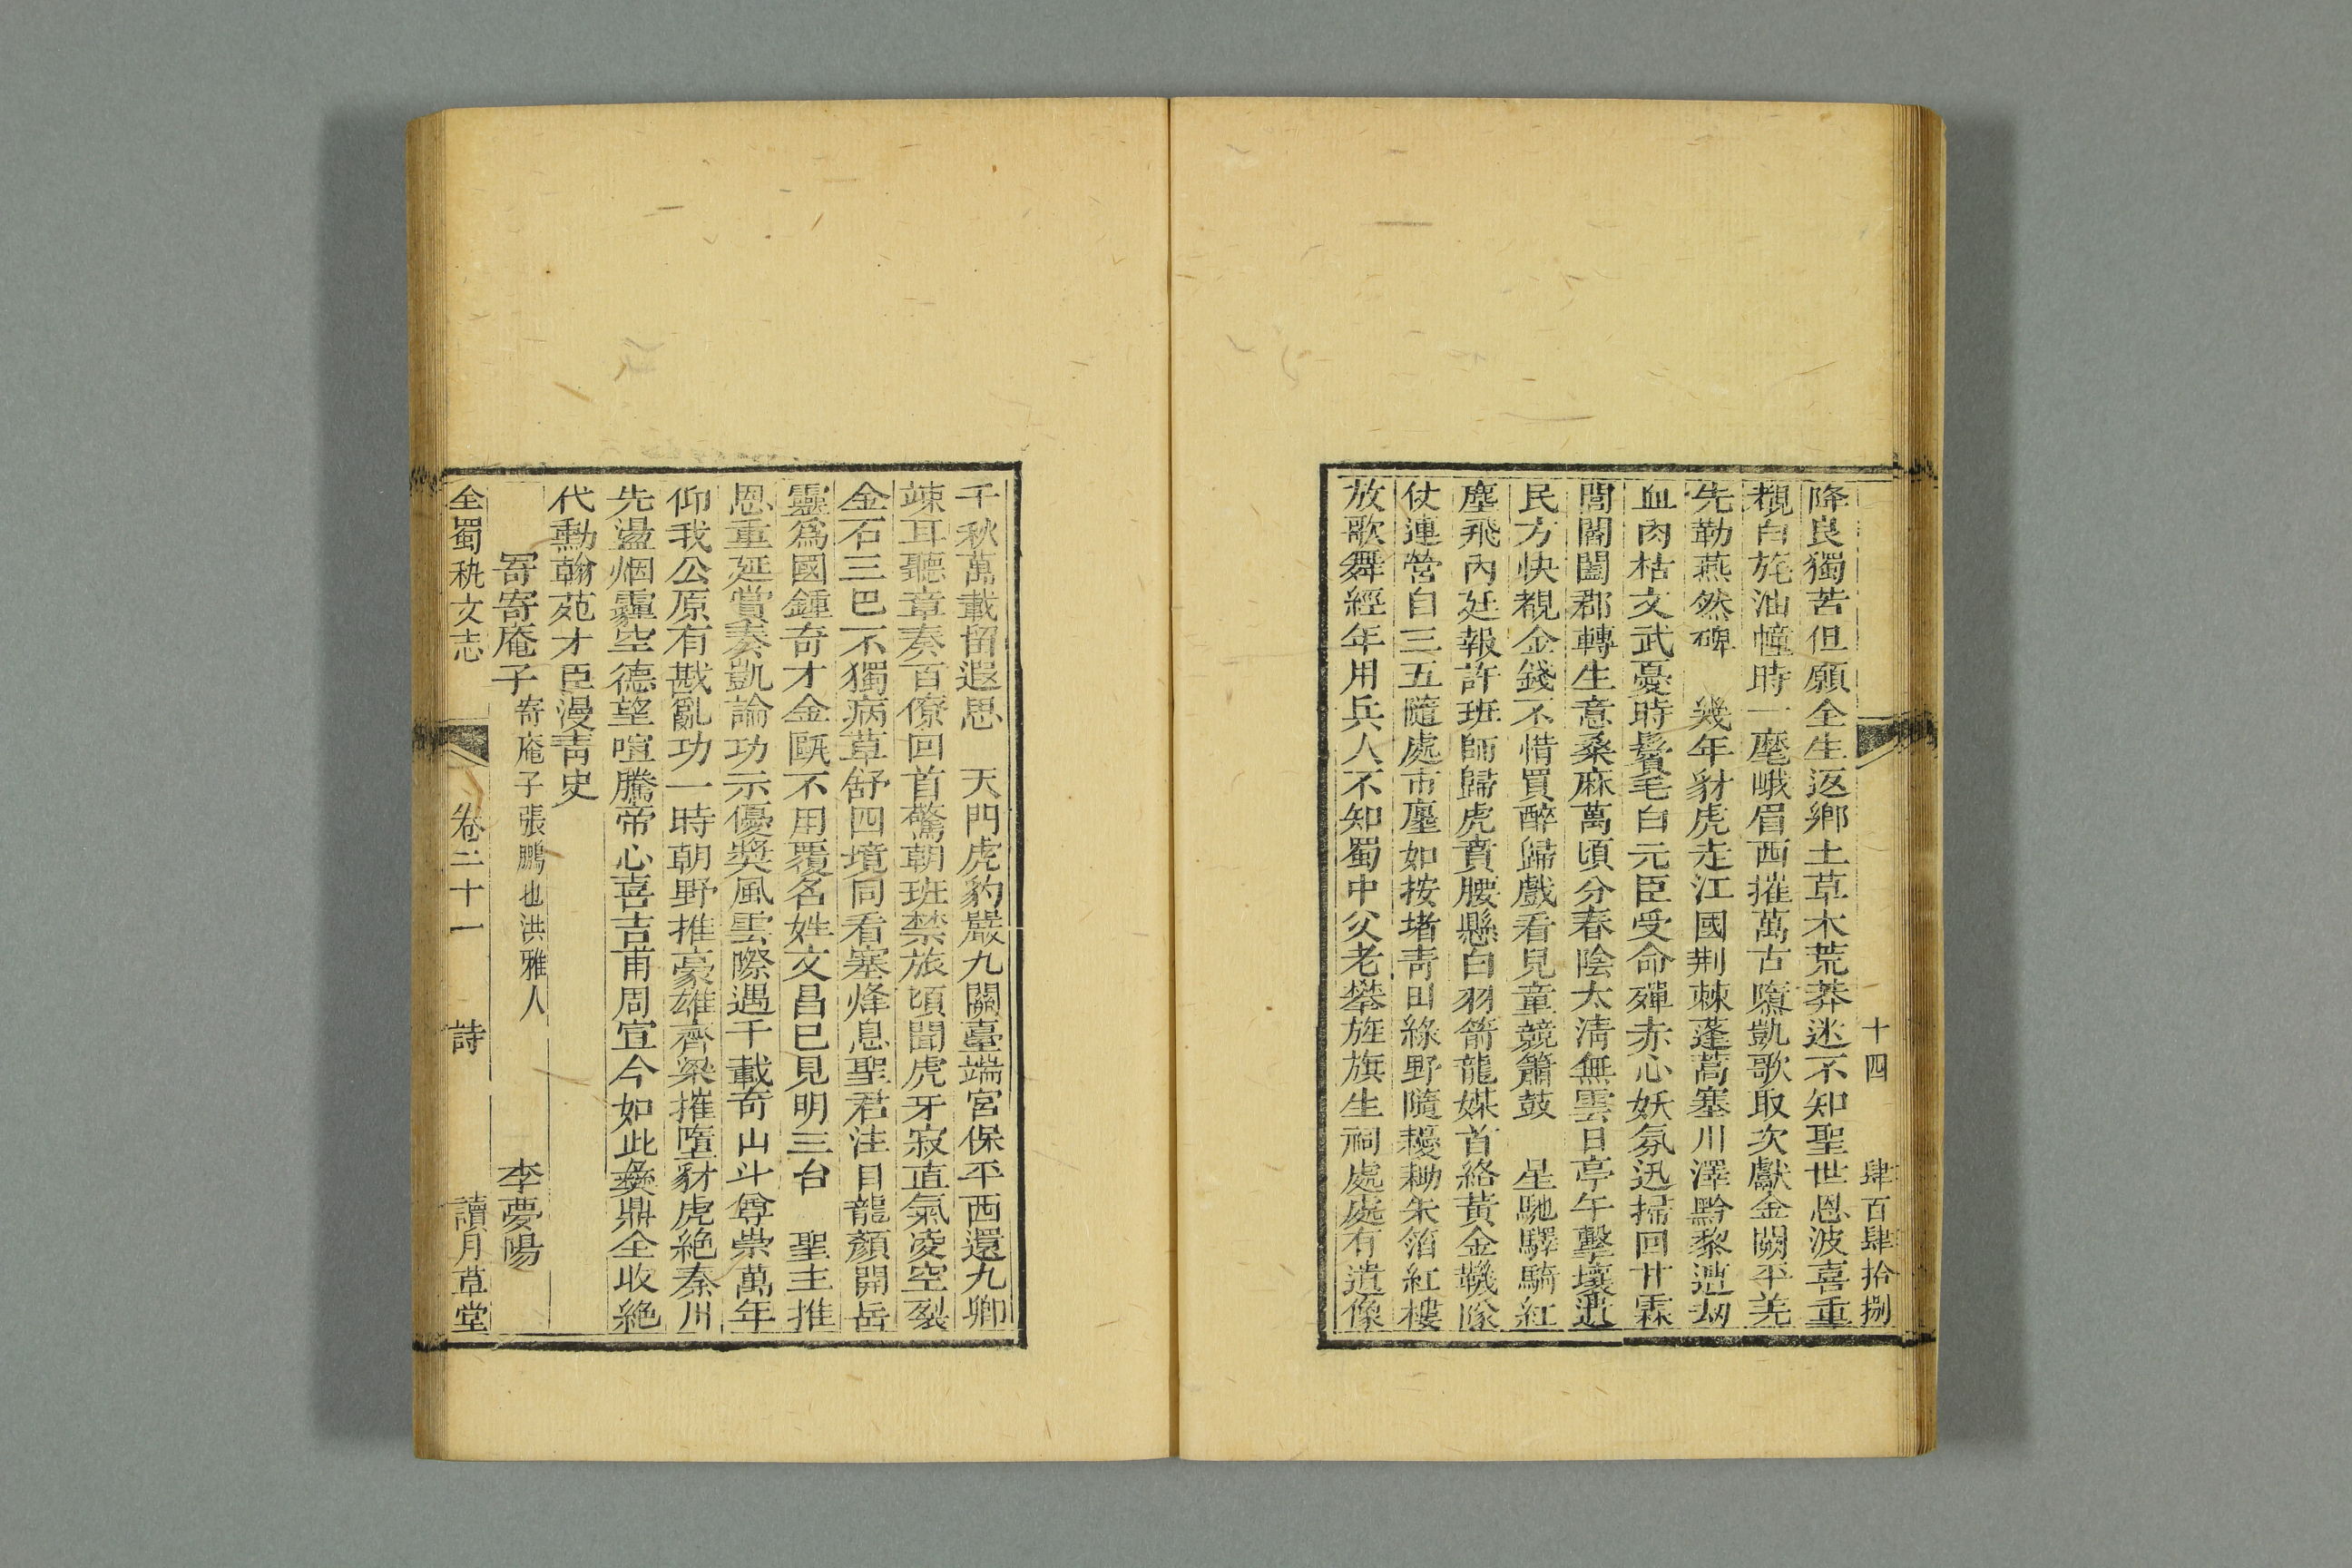 十四 肆百肆拾捌
降良獨苦但願全生返鄉土草木荒莽迷不知聖世恩波喜重
覩白旄油幢時一麾峨眉西摧萬古隳凱歌取次獻金闕平羌
先勒燕然碑 幾年豺虎走江國荆棘蓬蒿塞川澤黔黎遭刼
血肉枯文武憂時鬢毛白元臣受命殫赤心妖氛迅掃回甘霖
閭閻闔郡轉生意桑麻萬頃分春陰太淸無雲日亭午擊壤逃
民方快覩金錢不惜買醉歸戲看兒童競簫鼓 星馳驛騎紅
塵飛內廷報許班師歸虎賁腰懸白羽箭龍媒首絡黃金鞿隊
仗連營自三五隨處市廛如按堵靑田綠野隨耰耡朱箔紅樓
放歌舞經年用兵人不知蜀中父老攀旌旗生祠處處有遺像
千秋萬載留遐思 天門虎豹嚴九關臺端宮保平西還九卿
竦耳聽章奏百僚回首驚朝班禁旅頃聞虎牙寂直氣凌空裂
金石三巴不獨病草舒四境同看塞烽息聖君注目龍顏開岳
靈爲國鍾奇才金甌不用覆名姓文昌巳見明三台 聖主推
恩重延賞奏凱論功示優奬風雲際遇千載奇山斗尊崇萬年
仰我公原有戡亂功一時朝野推豪雄齊梁摧墮豺虎絶秦川
先盪烟霾空德望喧騰帝心喜吉甫周宣今如此彜鼎全收絶
代勳翰苑才臣漫靑史
寄寄庵子 寄庵子張鵬也洪雅人 李夢陽
全蜀秇文志 卷二十一 詩 讀月草堂